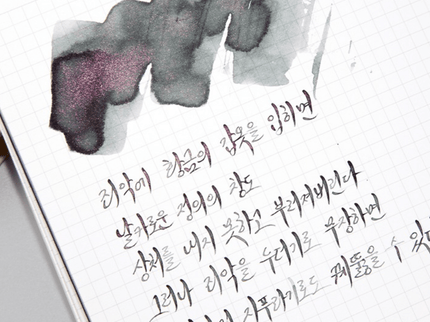 죄악에 황금의 갑옷을 입히면
날카로운 정의의 창도
상처를 내지 못하고 부러져버린다
그러나 죄악을 누더기로 무장하면
지푸라기로도 꿰뚫을 수 있다